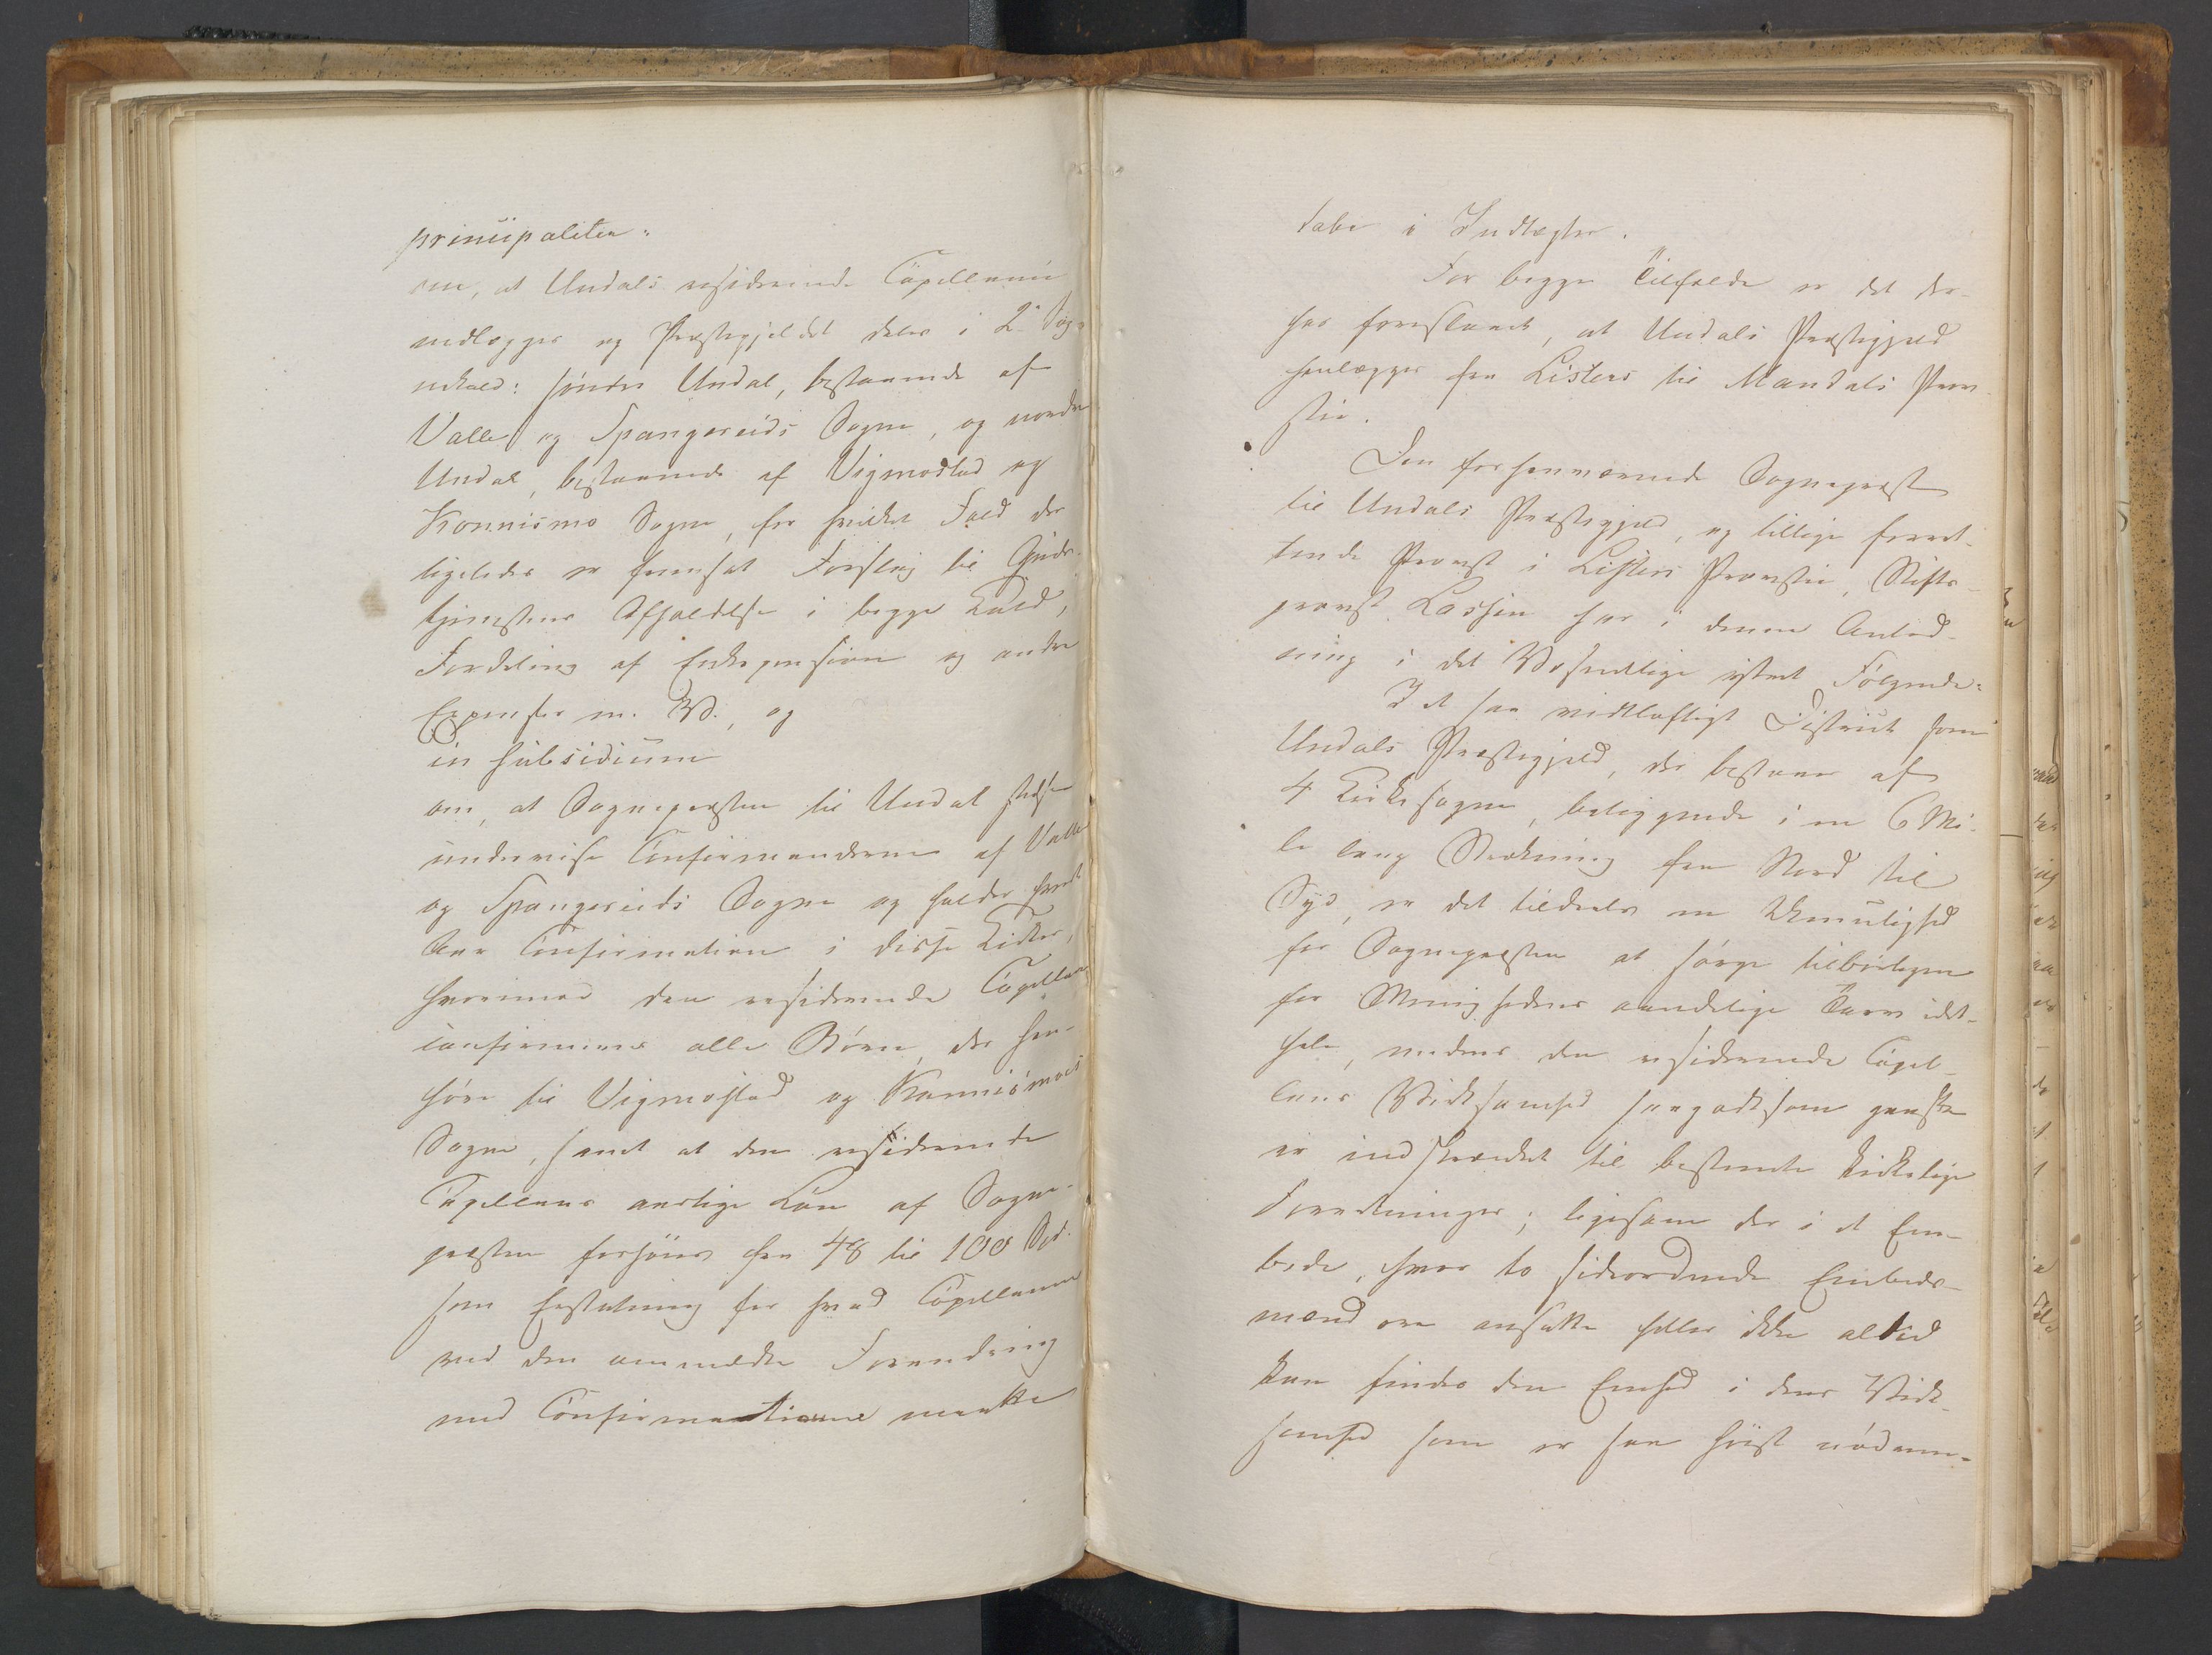 principaliter:
om, at Undals residerende Capellanie
nedlægges og Præstegjeldet deles i 2de Sog-
nekald: søndre Undal, bestaaende af
Valle og Spangereids Sogne, og nordre
Undal, bestaaende af Vigmostad og
Konnismo Sogne, for hvilket Fald der
ligeledes er fremsat Forslag til Guds-
tjenestens Afholdelse i begge Kald,
Fordeling af Enkepension og andre
Expenser m. V., og
in subsidium
om, at Sognepræsten til Undal skal
undervise Confirmanderne af Valle
og Spangereids Sogne og holder hvert
Aar Confirmation i disse Kirker,
hvorimod den residerende Capellan
confirmerer alle Børn, der hen-
høre til Vigmostad og Konnismoes
Sogne, samt at den residerende
Capellans aarlige Løn af Sogne-
præsten forhøies fra 48 til 100 Spd.
som Erstatning for hvad Capellanen
ved den anmeldte Forandring
med Confirmationerne maatte
tabe i Indtægter.
For begge Tilfælde er det der-
hos foreslaaet, at Undals Præstegjeld
henlægges fra Listers til Mandals Prov-
stie.
Den forhenværende Sognepræst
til Undals Præstegjeld, og tillige forret-
tende Provst i Listers Provstie, Stifts-
provst Lassen har i denne Anled-
ning i det Væsentlige yttret Følgende:
I et saa vidtløftigt District som
Undals Præstegjeld, der bestaaer af
4 Kirkesogne, beliggende i en 6 Mi-
le lang Strækning fra Nord til
Syd, er det tildeels en Umulighed
for Sognepræsten at sørge tilbørligen
for Menighedens aandelige Tarv idet-
hele, medens den residerende Capel-
lans Virksomhed saagodtsom ganske
er indskrænket til bestemte kirkelige
Forretninger; ligesom der i et Em-
bede, hvor to sideordnede Embeds-
mænd ere ansatte heller ikke altid
kan findes den Eenhed i deres Virk-
somhed som er saa høist nødven-